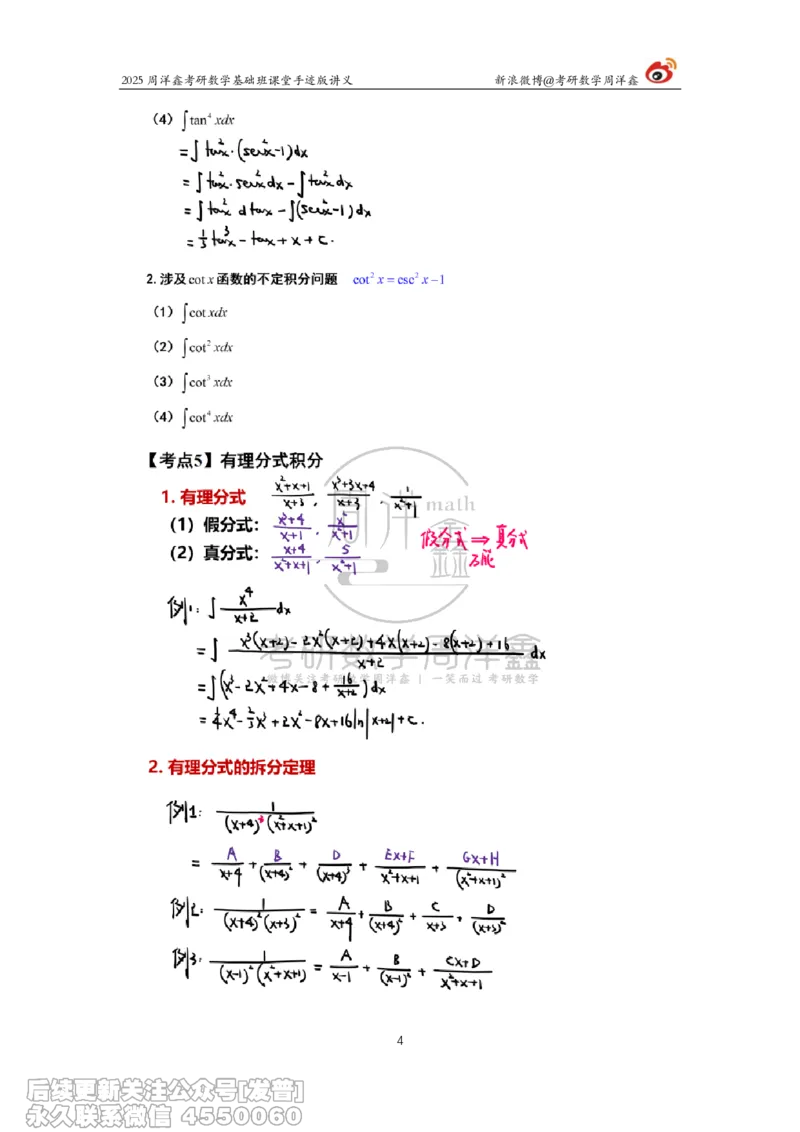 2025 周洋鑫考研数学基础班课堂手迹版讲义 新浪微博@考研数学周洋鑫
(4) ∫tan⁴ xdx
=∫tan²x·(sec²x-1)dx
=∫tan²x·sec²xdx-∫tan²xdx
=∫tan²x dtanx-∫(sec²x-1)dx
=1/3 tan³x-tanx+x+C.
2. 涉及cot x 函数的不定积分问题 cot² x = csc² x -1
(1) ∫cot xdx
(2) ∫cot² xdx
(3) ∫cot³ xdx
(4) ∫cot⁴ xdx
【考点5】有理分式积分
1. 有理分式 (x²+x+1)/(x+3), (x³+3x+4)/(x+3), 1/(x²+1)
(1) 假分式: (x³+4)/(x+1), x²/(x²+1)
(2) 真分式: (x+4)/(x²+x+1), 5/(x²+1)
假分式⇒真分式
周洋鑫 math
例1: ∫x⁴/(x+2) dx
=∫[x³(x+2)-2x²(x+2)+4x(x+2)-8(x+2)+16]/(x+2) dx
考研数学周洋鑫
微博关注考研数学周洋鑫 | 一笑而过 考研数学
=∫(x³-2x²+4x-8+16/(x+2))dx
=1/4x⁴-2/3x³+2x²-8x+16ln|x+2|+C.
2. 有理分式的拆分定理
例1: 1/[(x+4)³(x²+x+1)²]
= A/(x+4) + B/(x+4)² + D/(x+4)³ + (Ex+F)/(x²+x+1) + (Gx+H)/(x²+x+1)²
例2: 1/[(x+4)²(x+3)²] = A/(x+4) + B/(x+4)² + C/(x+3) + D/(x+3)²
例3: 1/[(x-1)²(x²+x+1)] = A/(x-1) + B/(x-1)² + (Cx+D)/(x²+x+1)
4
后续更新关注公众号[发普]
永久联系微信 4550060